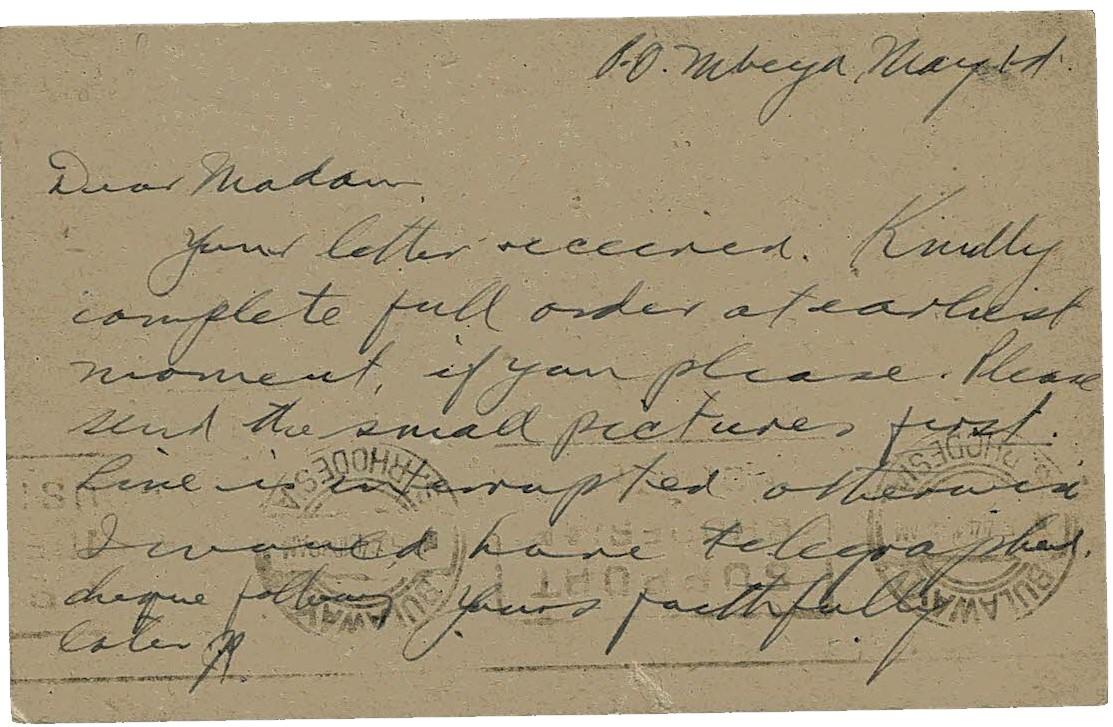 P.O. Mbeya May
Dear Madam
Your letter received. Kindly
complete full order at earliest
moment, if you please. Please
send the small pictures first.
Line is interrupted otherwise
I would have telegraphed.
cheque follows Yours faithfully
later
RHODESIA
BULAWAYO
SUPPORT
RHODESIA
BULAWAYO